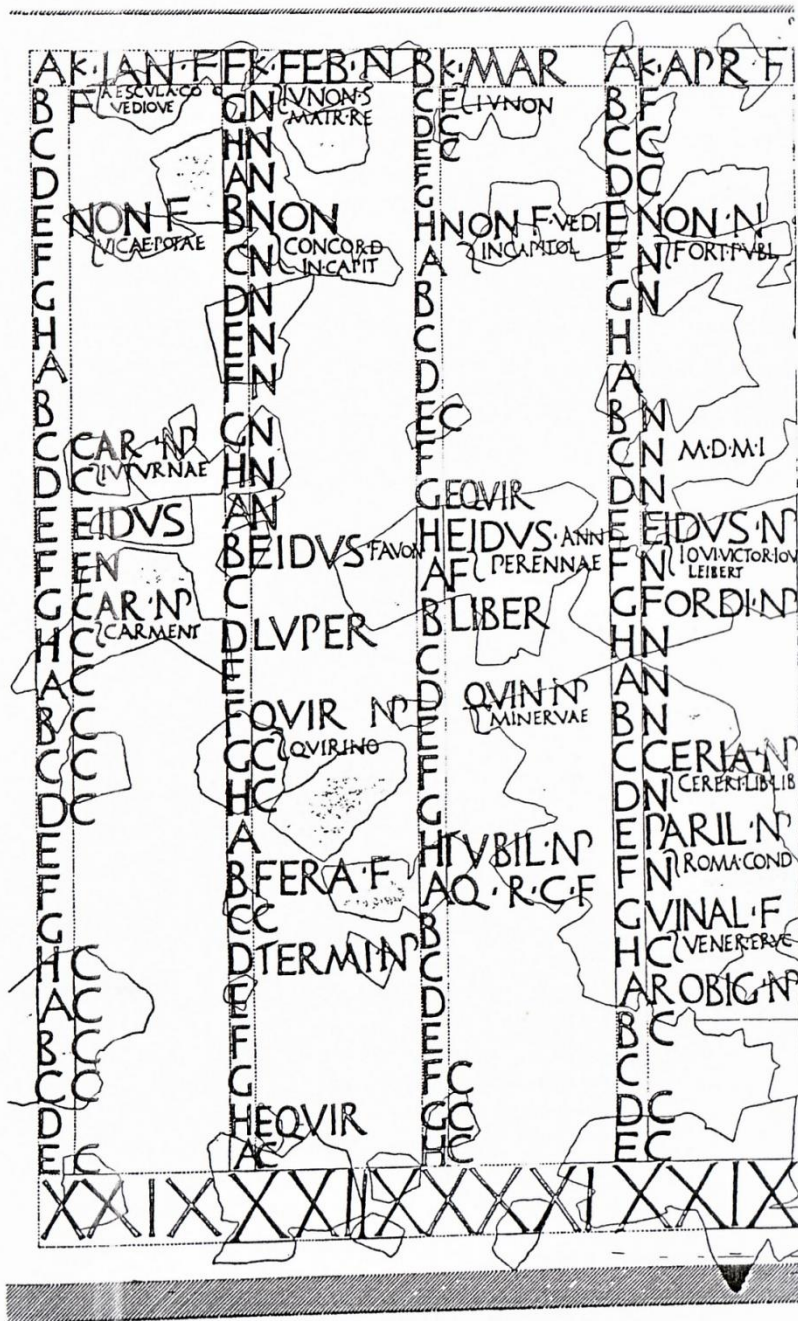 A K·IAN·F
B F AESCVLA·CO
VEDIOVE
C
D
E NON F
VICAE·POTAE
F
G
H
A
B
C CAR·NP
D C IVTVRNAE
E EIDVS
F EN
G CAR·NP
H C CARMENT
A C
B C
C C
D C
E
F
G
H C
A C
B C
C C
D
E C
XXIX
F K·FEB·N
G N IVNON·S
MATR·RE
H N
A N
B NON
C N CONCORD
IN·CAPIT
D N
E N
F N
G N
H N
A N
B EIDVS·FAVON
C
D LVPER
E
F QVIR NP
G C QVIRINO
H C
A
B FERA·F
C C
D TERMI·NP
E
F
G
H EQVIR
A C
XXIIX
B K·MAR
C F IVNON
D C
E C
F
G
H NON F·VEDI
INCAPITOL
A
B
C
D
E C
F
G EQVIR
H EIDVS·ANN
PERENNAE
A F
B LIBER
C
D QVIN NP
MINERVAE
E
F
G
H TVBIL·NP
A Q·R·C·F
B
C
D
E
F C
G C
H C
XXXI
A K·APR·F
B F
C C
D C
E NON·N
F N FORT·PVBL
G N
H
A
B N
C N M·D·M·I
D N
E EIDVS·NP
F N IOVI·VICTOR·IOV
LEIBERT
G FORDI·NP
H N
A N
B N
C CERIA·NP
D N CERERI·LIB·LIB
E PARIL·NP
F N ROMA·COND
G VINAL·F
H C VENER·ERVC
A ROBIG·NP
B C
C
D C
E C
XXIX